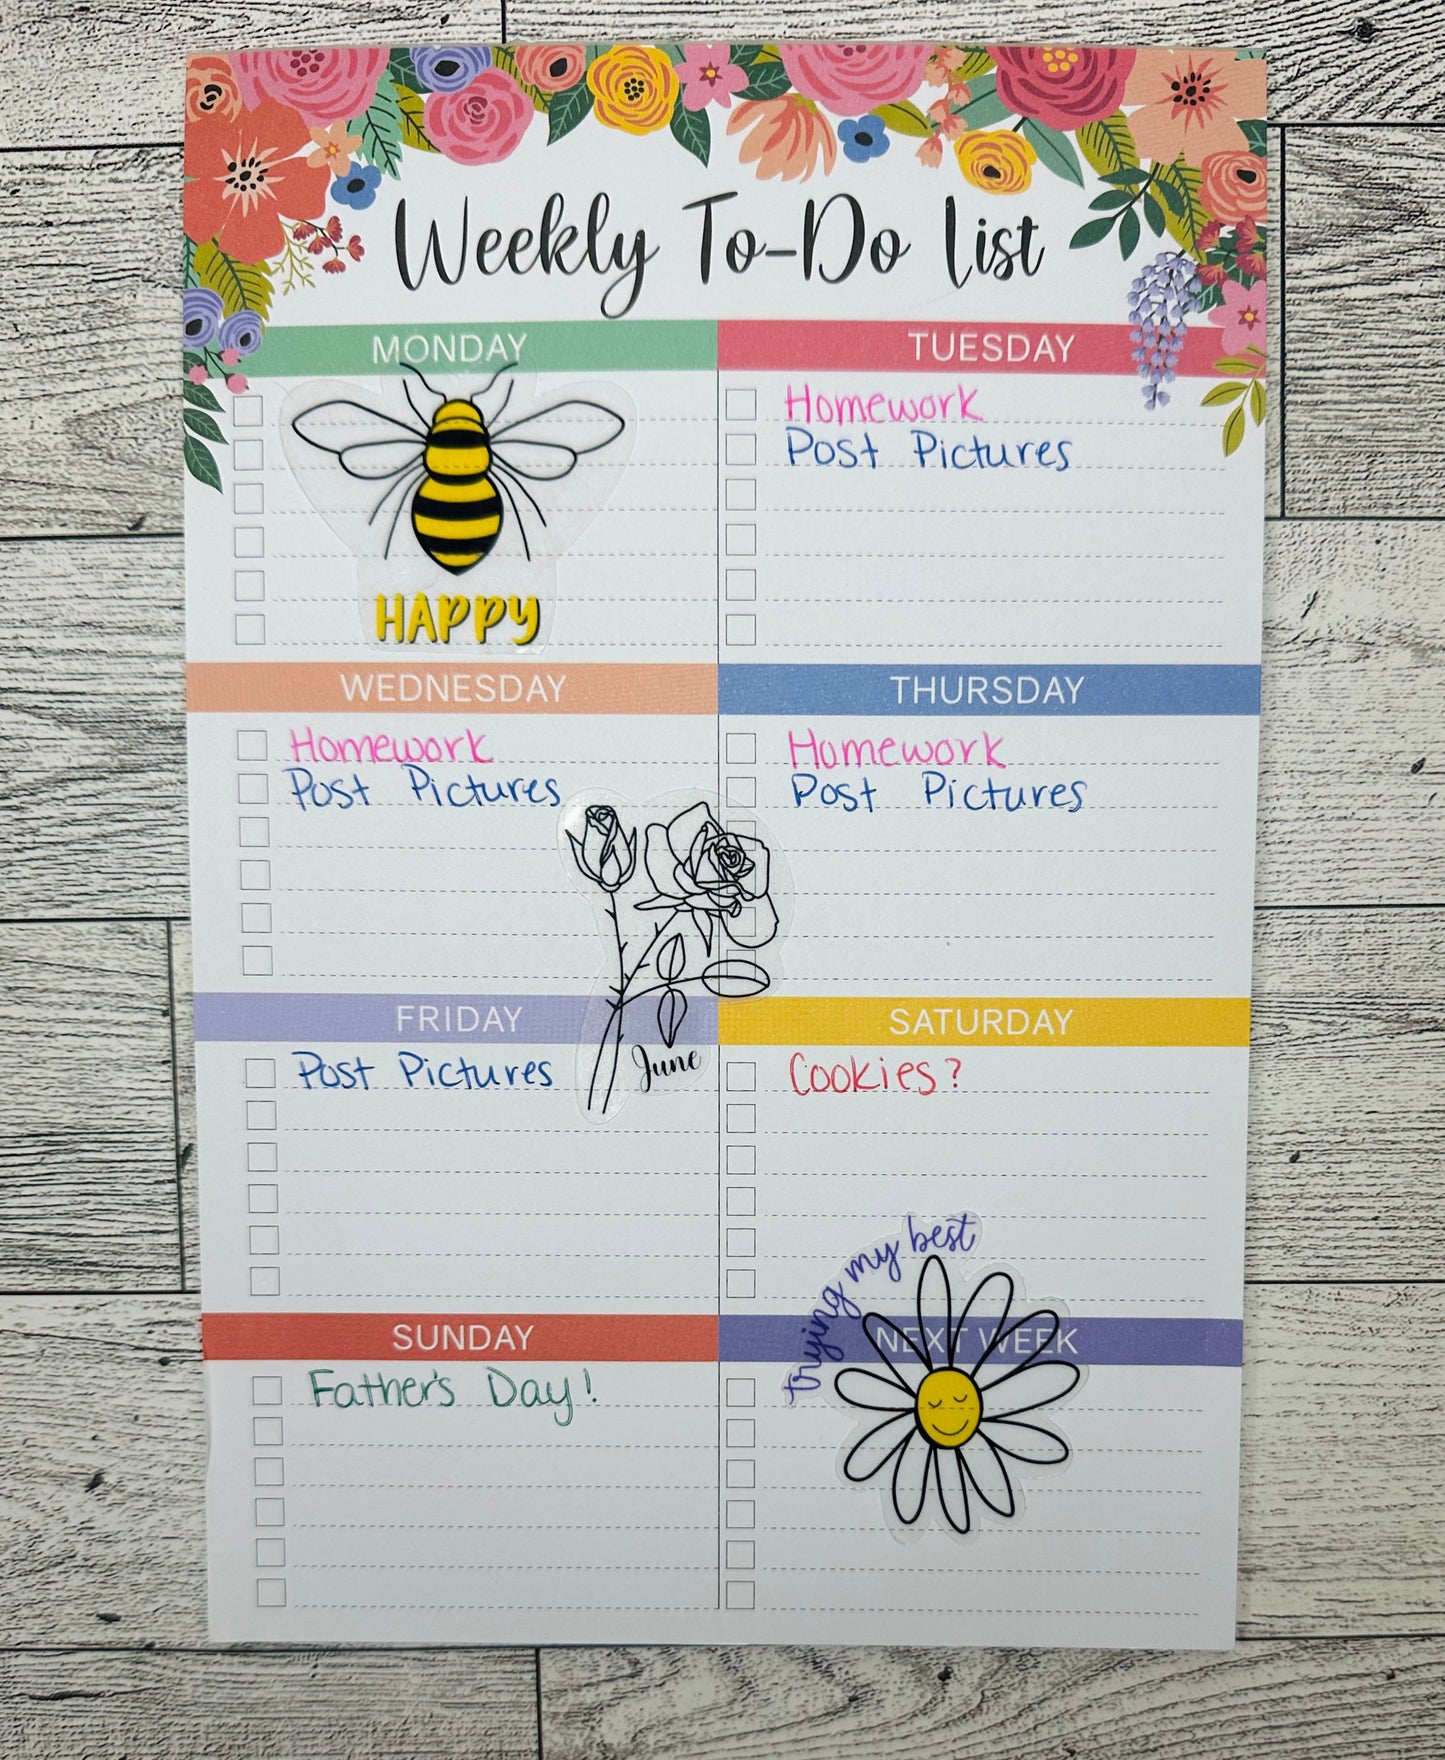 Weekly To-Do List
MONDAY
HAPPY
TUESDAY
Homework
Post Pictures
WEDNESDAY
Homework
Post Pictures
THURSDAY
Homework
Post Pictures
FRIDAY
Post Pictures
June
SATURDAY
Cookies?
SUNDAY
Father's Day!
trying my best
NEXT WEEK